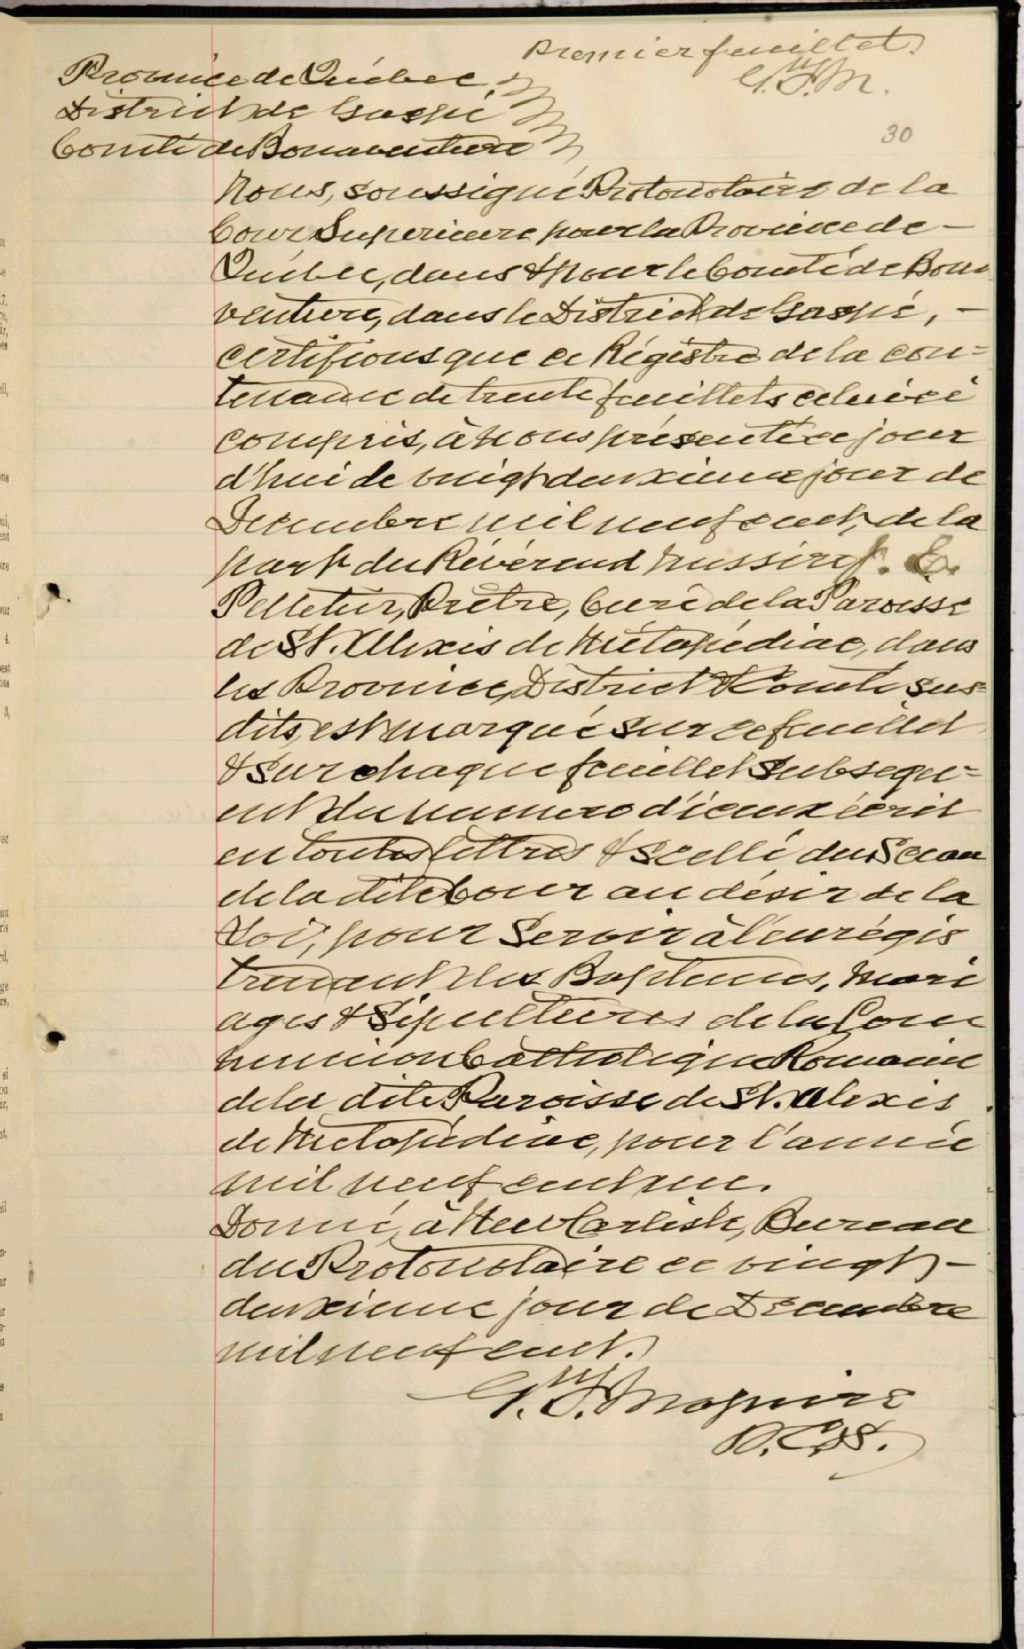 Premier feuillet.
Province de Québec
District de Gaspé
Comté de Bonaventure
30
Nous, soussigné Protonotaire de la
Cour Superieure pour la Province de
Québec, dans & pour le Comté de Bona
venture, dans le District de Gaspé, -
certifions que ce Régistre de la con=
tenance de trente feuillets celui ci
compris, à Nous présenté ce jour
d'hui le vingt deuxieme jour de
Decembre mil neuf cent, de la
part du Révérend Messire J. E.
Pelletier, Prêtre, Curé de la Paroisse
de St. Alexis de Métapédiac, dans
les Province, District & Comté sus=
dits, est marqué sur ce feuillet
& sur chaque feuillet subsequ=
ent du numero d'iceux écrit
en toutes lettres & scellé du Sceau
de la dite Cour au désir de la
Loi, pour servir à l'enrégis
trement des Baptemes, Mari
ages & Sépultures de la Com
munion Catholique Romaine
de la dite Paroisse de St. Alexis
de Métapédiac, pour l'année
mil neuf cent un.
Donné, à New Carlisle, Bureau
du Protonotaire ce vingt -
deuxieme jour de Decembre
mil neuf cent.
Maguire
P.C.S.